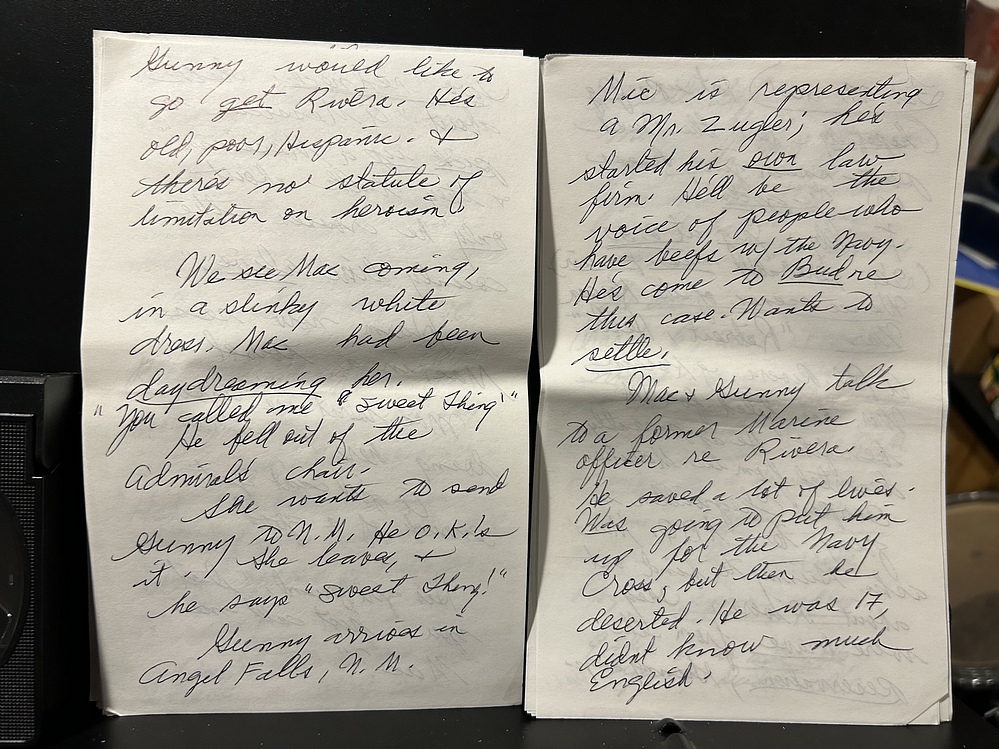 Gunny would like to
go get Rivera. He's
old, poor, Hispanic. &
there's no statute of
limitation on heroism.
We see Mac coming,
in a slinky white
dress. Mac had been
daydreaming her.
"You called me 'Sweet Thing'"
He fell out of the
Admiral's chair.
She wants to send
Gunny to N.M. He O.K.'s
it. She leaves, &
he says "Sweet Thing!"
Gunny arrives in
Angel Falls, N.M.
Mic is representing
a Mr. Zugler; he's
started his own law
firm. He'll be the
voice of people who
have beefs w/ the Navy.
He's come to Bud re
this case. Wants to
settle.
Mac & Gunny talk
to a former Marine
officer re Rivera.
He saved a lot of lives.
Was going to put him
up for the Navy
Cross, but then he
deserted. He was 17,
didn't know much
English.